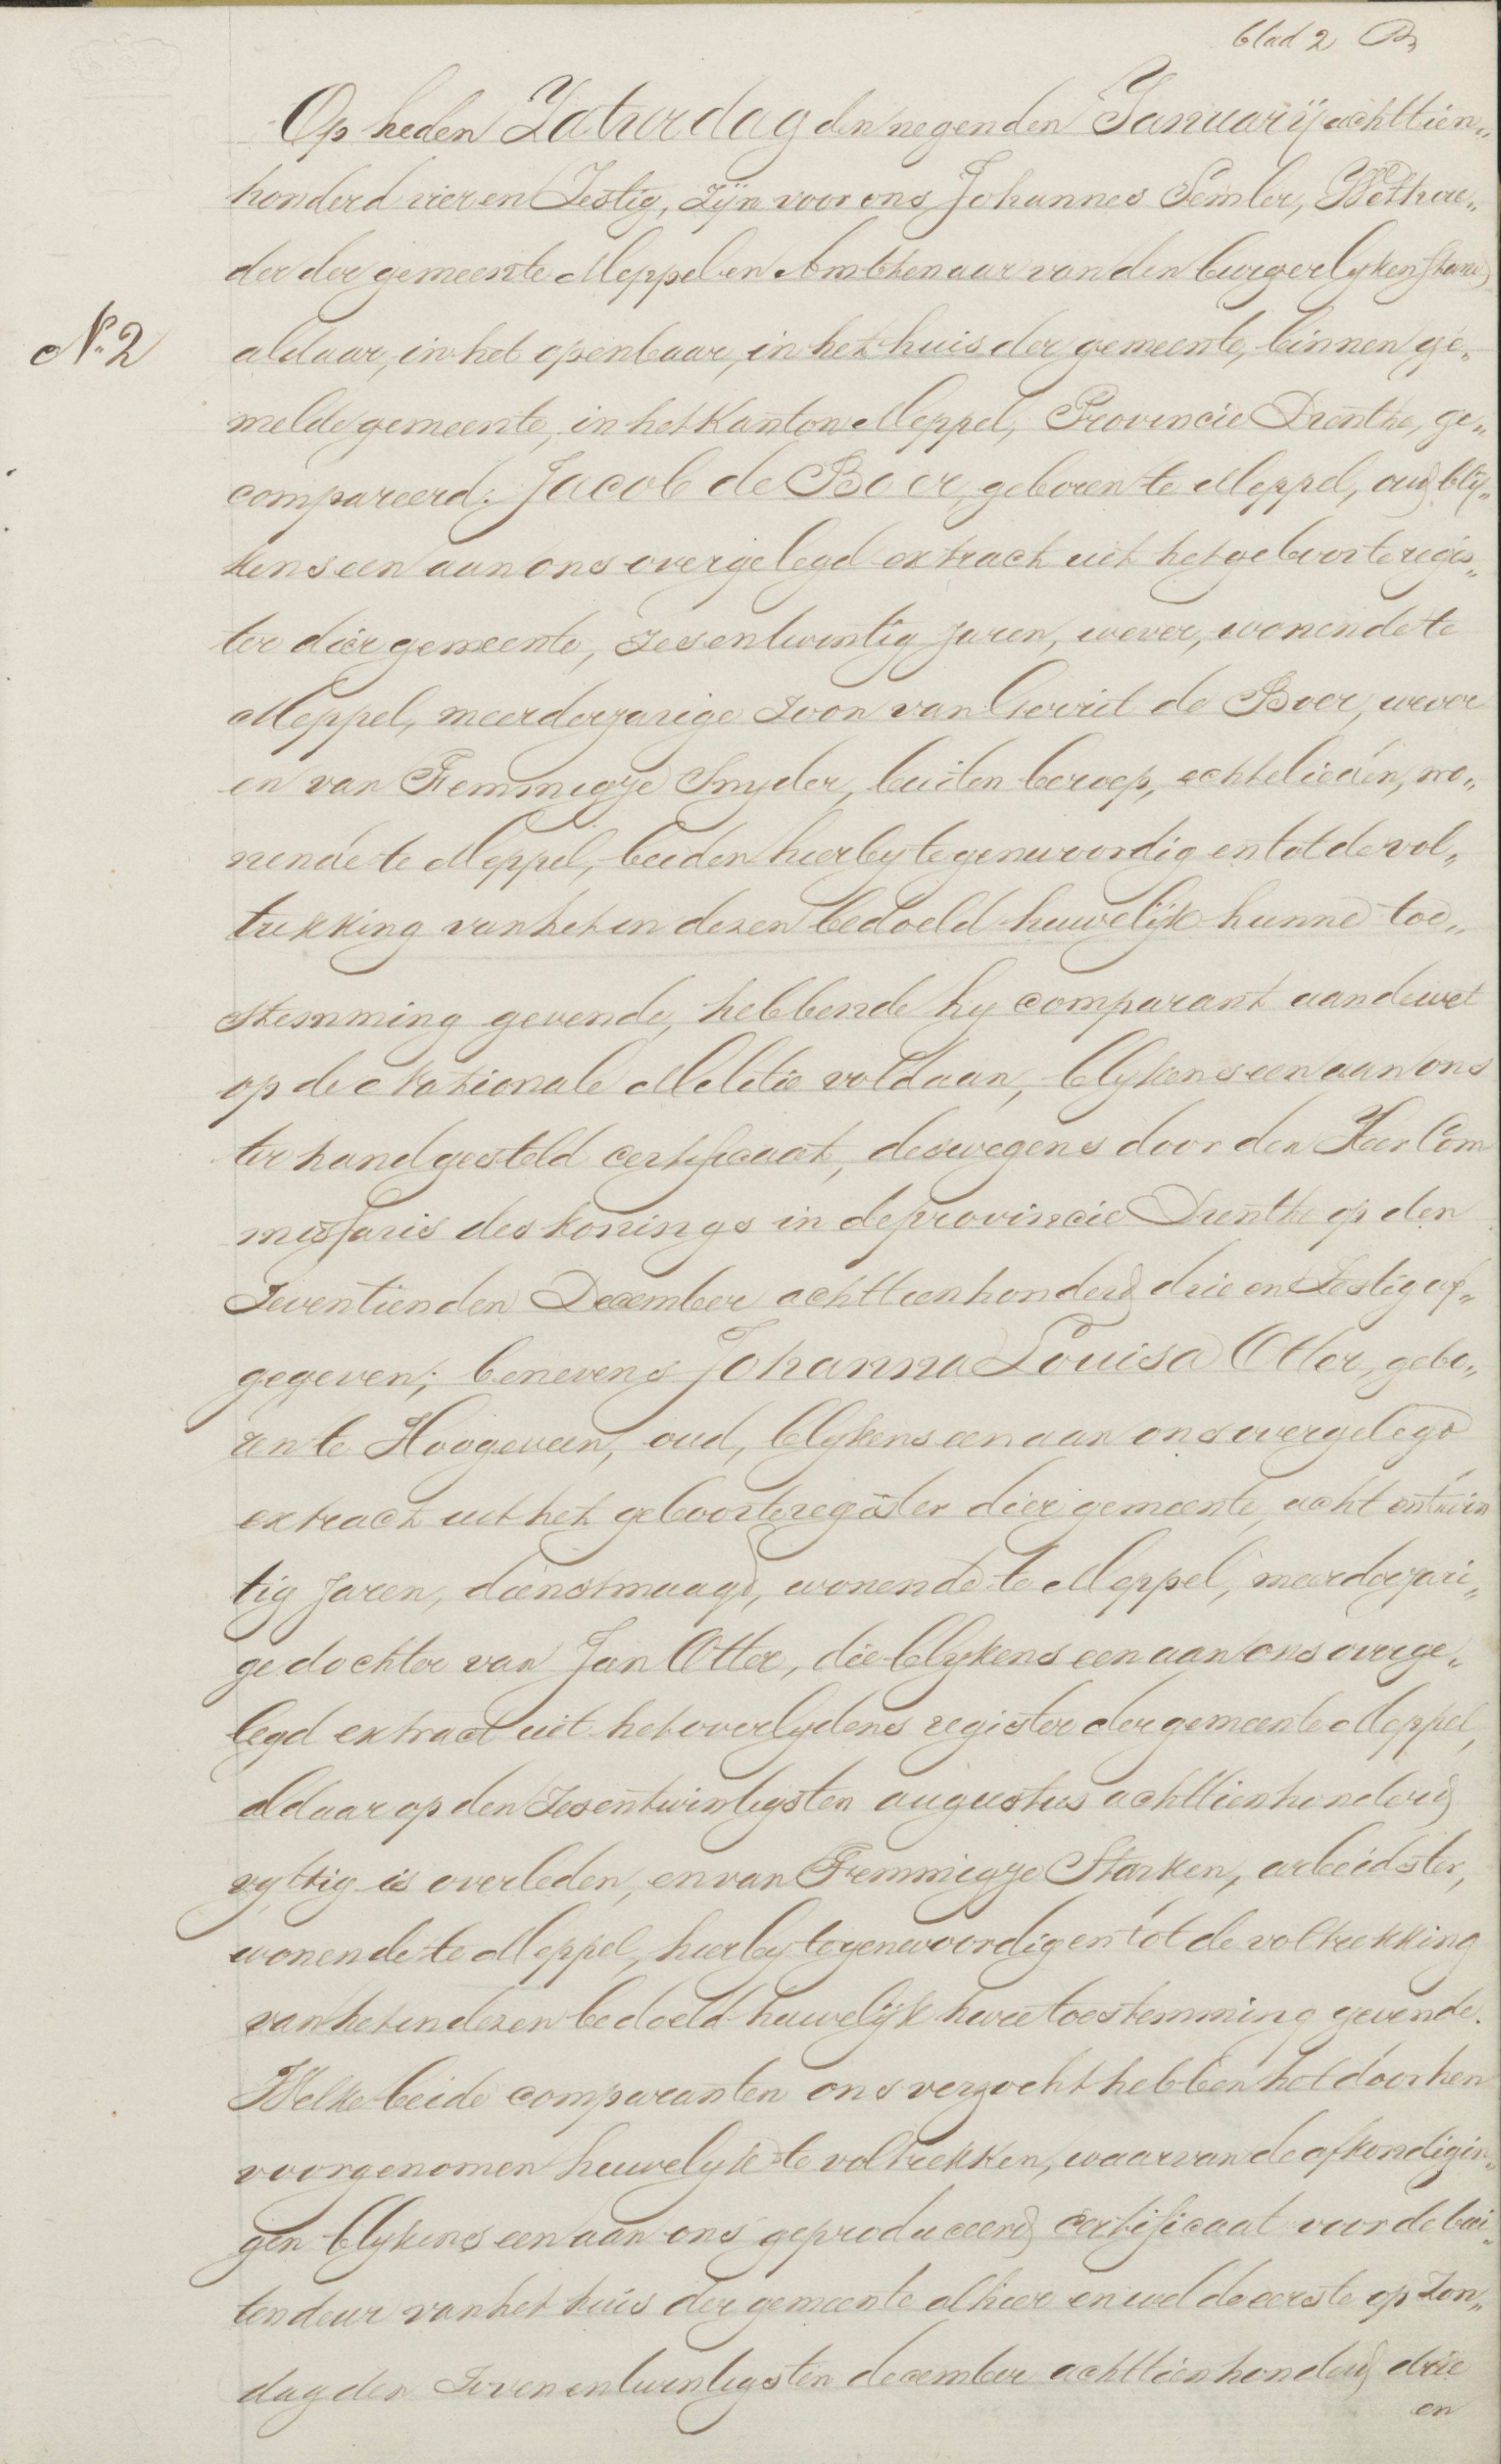 blad 2
Op heden Zaturdag den negenden Januarij achttien„
honderd vier en Zestig, zijn voor ons Johannes Semler, Wethou„
der der gemeente Meppel en Ambtenaar van den burgerlyken stand
aldaar, in het openbaar, in het huis der gemeente, binnen ge„
N.º 2
melde gemeente, in het Kanton Meppel, Provincie Drenthe, ge„
compareerd: Jacob de Boer, geboren te Meppel, oud, bly„
kens een aan ons overgelegd extract uit het geboorteregis„
ter dier gemeente, zesentwintig jaren, wever, wonende te
Meppel, meerderjarige zoon van Gerrit de Boer, wever
en van Femmigje Snyder, buiten beroep, echtelieden, wo„
nende te Meppel, beiden hierby tegenwoordig en tot de vol„
trekking van het in dezen bedoeld huwelijk hunne toe„
stemming gevende, hebbende hy comparant aan de wet
op de Nationale Militie voldaan, blykens een aan ons
ter hand gesteld certificaat, deswegens door den Heer Com
missaris des konings in de provincie Drenthe op den
Zeventienden December achttienhonderd drie en Zestig af„
gegeven; benevens Johanna Louisa Otter, gebo„
ren te Hoogeveen, oud, blykens een aan ons overgelegd
extract uit het geboorteregister dier gemeente, acht entwin
tig jaren, dienstmaagd, wonende te Meppel, meerderjari„
ge dochter van Jan Otter, die blykens een aan ons overge„
legd extract uit het overlydens register der gemeente Meppel,
aldaar op den Zesentwintigsten augustus achttienhonderd
vyftig is overleden, en van Femmigje Starken, arbeidster,
wonende te Meppel, hierby tegenwoordig en tot de voltrekking
van het in dezen bedoeld huwelijk hare toestemming gevende.
Welke beide comparanten ons verzocht hebben het door hen
voorgenomen huwelyk te voltrekken, waarvan de afkondigin„
gen blykens een aan ons geproduceerd certificaat voor de bui„
tendeur van het huis der gemeente alhier en wel de eerste op Zon„
dag den Zevenentwintigsten december achttienhonderd drie
en